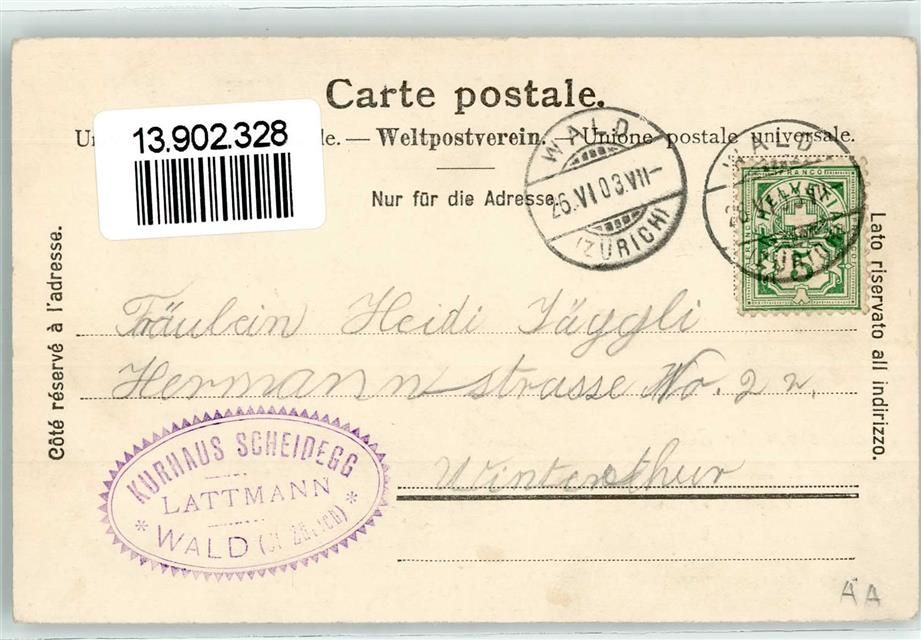 Carte postale.
13.902.328
le. — Weltpostverein. — Unione postale universale.
Nur für die Adresse.
WALD
26.VI.03.VII-
(ZÜRICH)
WALD
FRANCO
HELVETIA
5
Côté réservé à l'adresse.
Lato riservato all indirizzo.
Fräulein Heidi Jäggli
Hermannstrasse No. 22.
Winterthur
KURHAUS SCHEIDEGG
LATTMANN
* WALD (Ct. Zürich) *
AA